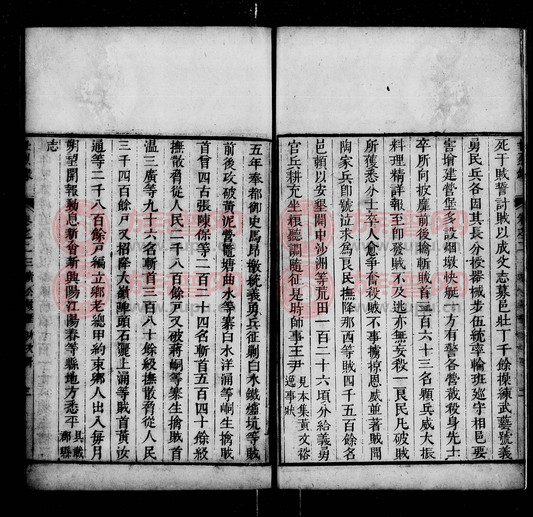 死于賊誓討賊以成父志募邑壯丁千餘操練武藝號義
勇民兵各因其長分授器械步伍統率輪班巡守相邑要
害增建營堡多設烟墩快艇一方有警各營截殺身先士
卒所向披靡前後擒斬賊首三百六十三名顆兵威大振
料理精詳報至卽發賊不及逃亦無妄殺一良民凡破賊
所獲悉分士卒人愈爭奮殺賊不事擄掠恩威並著賊聞
陶家兵卽號泣求爲良民撫降那西等賊四千五百餘名
邑賴以安墾闢中沙洲等荒田一百二十六頃分給義勇
官兵耕充坐根聽調隨征是時師事王尹 見本集黃文裕
適事狀
五年奉都御史馬昂檄統義勇兵征剿白水鐵爐坑等賊
前後攻破黃泥營鼈塘曲水等寨白水洋涌等峒生擒賊
首曾四古張陳保等二百二十四名斬首五百四十餘級
撫散脅從人民二千八百餘戸又破蔣峒等寨生擒賊首
温三廣等九十六名斬首三百八十餘級撫散脅從人民
三千四百餘戸又招降大嶺陣頭石壟上涌等賊首黃汝
通等二千八百餘戸編立鄉老總甲約束鄉人出入每月
朔望開報動息新會新興陽江陽春等縣地方悉平 其載
郡縣
志